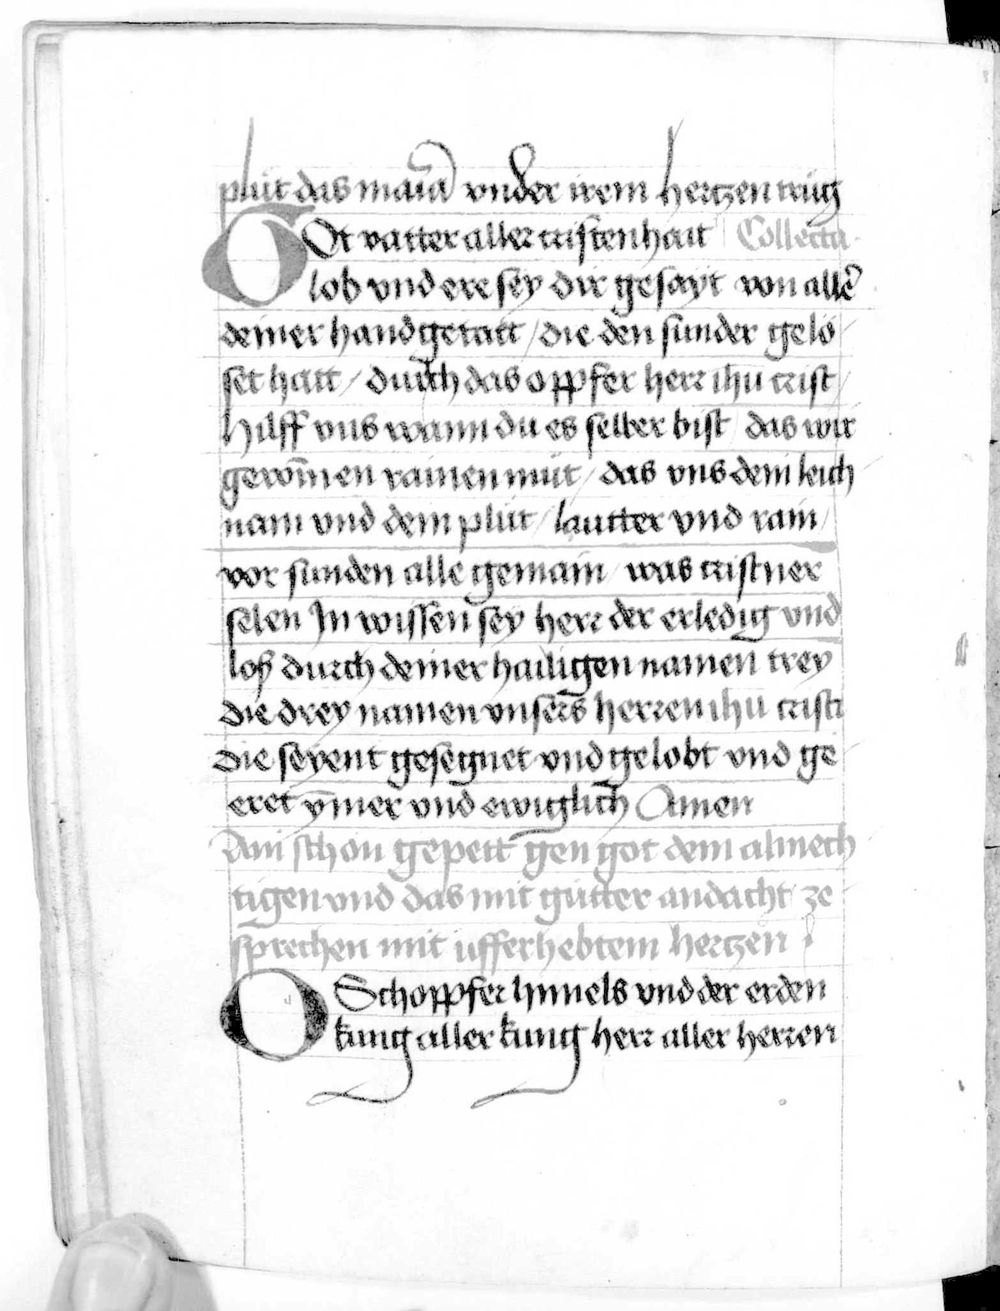 plůt das maria vnder irem hertzen trůg
GOt vatter aller cristenhait Collecta
lob vnd ere sey dir gesayt von alle᷑
deiner handgetatt / die den sunder gelö
set hatt / durch das oppfer herr ihu crist /
hilff vns wann du es selber bist / das wir
gewin̄en rainen můt / das vns dein leich
nam vnd dein plůt / lautter vnd rain /
vor sunden alle gemain / was cristner
selen In wissen sey herr der erledig vnd
loß durch deiner hailigen namen trey
die drey namen vnsers herren ihu cristi
die seyent gesegnet vnd gelobt vnd ge
eret ym̄er vnd ewiglich Amen
Ain schon gepett gen got dem almech
tigen vnd das mit gůtter andacht ze
sprechen mit ufferhebtem hertzen
O Schoppfer himels vnd der erden
kung aller kung herr aller herren